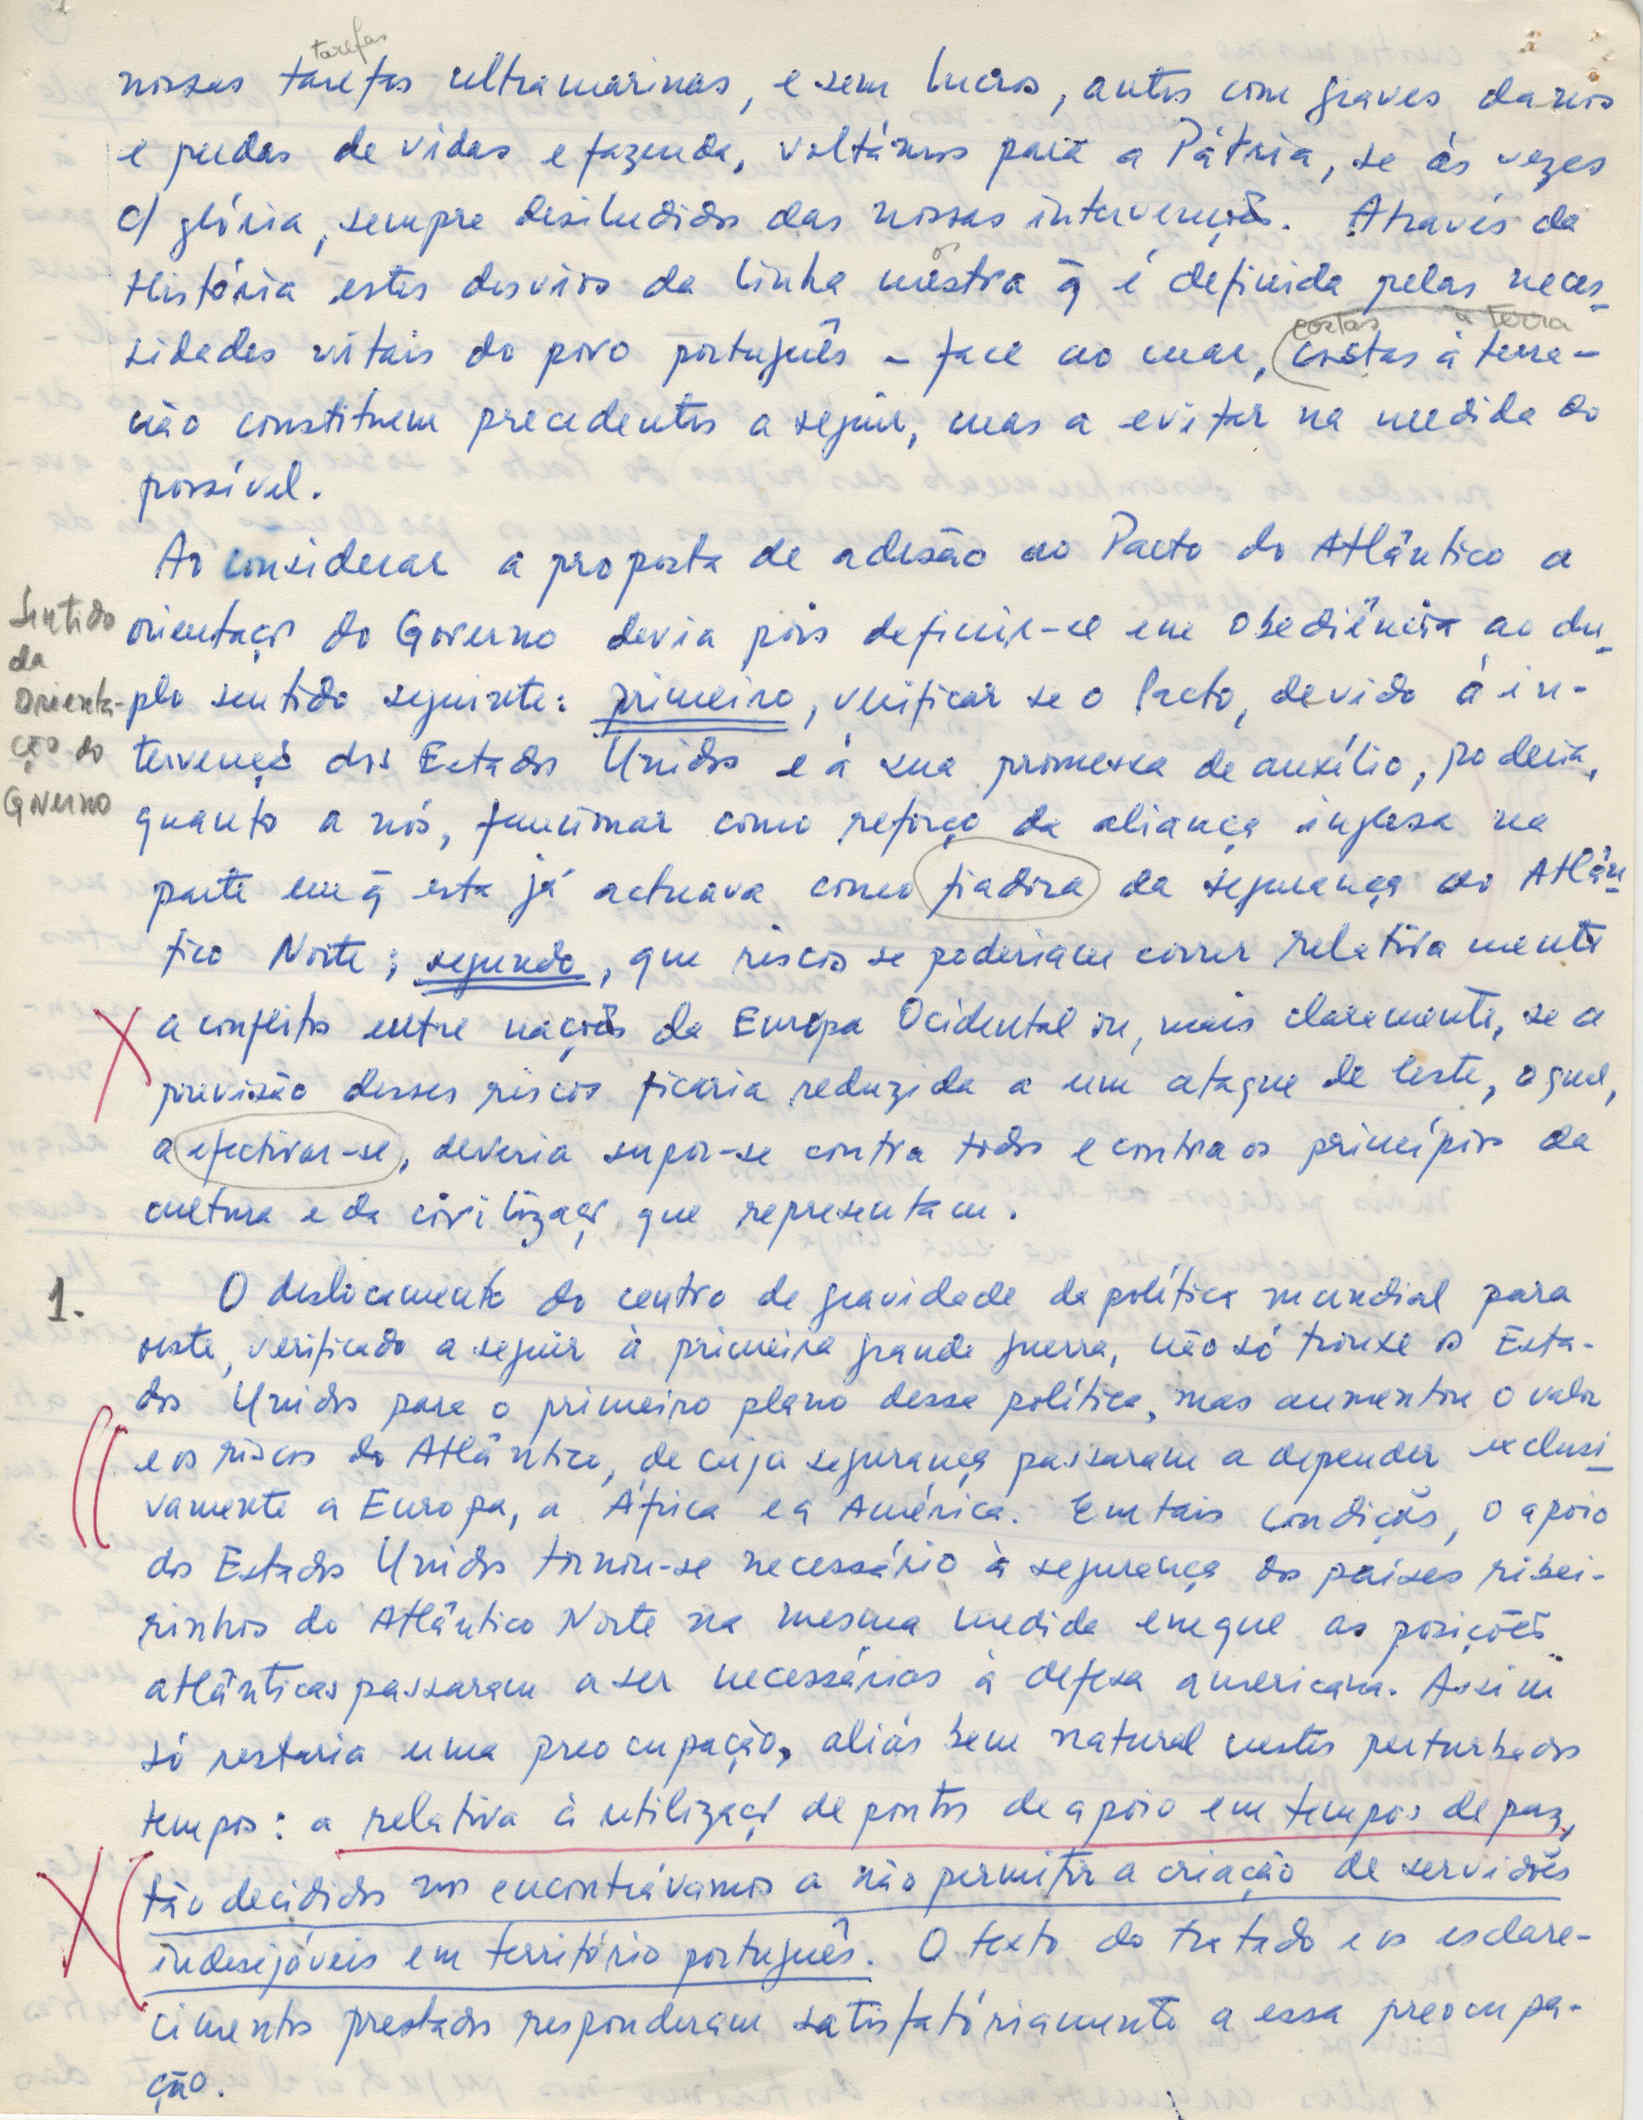 tarefas
nossas tarefas ultramarinas, e sem lucros, antes com graves danos
e perdas de vidas e fazenda, voltámos para a Pátria, se ás vezes
c/ glória, sempre desiludidos das nossas intervenções. Através da
História estes desvios da linha mestra q̃ é definida pelas neces-
costas à terra
sidades vitais do povo português - face ao mar, costas à terra -
não constituem precedentes a seguir, mas a evitar na medida do
possível.
Ao considerar a proposta de adesão ao Pacto do Atlântico a
Sentido da Orienta-ção do Governo
orientaçã do Governo devia pois definir-se em obediência ao du-
plo sentido seguinte: primeiro, verificar se o Pacto, devido á in-
tervençã dos Estados Unidos e á sua promessa de auxílio, poderia,
quanto a nós, funcionar como reforço da aliança inglesa na
parte em q̃ esta já actuava como fiadora da segurança do Atlân-
tico Norte; segundo, que riscos se poderiam correr relativamente
a conflitos entre nações da Europa Ocidental ou, mais claramente, se a
previsão desses riscos ficaria reduzida a um ataque de leste, o qual,
a efectivar-se, deveria supor-se contra todos e contra os princípios da
cultura e da civilizaçã que representam.
1. O deslocamento do centro de gravidade da política mundial para
oeste, verificado a seguir à primeira grande guerra, não só trouxe os Esta-
dos Unidos para o primeiro plano dessa política, mas aumentou o valor
e os riscos do Atlântico, de cuja segurança passaram a depender exclusi-
vamente a Europa, a África e a América. Em tais condições, o apoio
dos Estados Unidos tornou-se necessário à segurança dos países ribei-
rinhos do Atlântico Norte na mesma medida em que as posições
atlânticas passaram a ser necessárias à defesa americana. Assim
só restaria uma preocupação, aliás bem natural nestes perturbados
tempos: a relativa à utilizaçã de pontos de apoio em tempos de paz,
tão decididos nos encontrávamos a não permitir a criação de servidões
indesejáveis em território português. O texto do tratado e os esclare-
cimentos prestados responderam satisfatóriamente a essa preocupa-
ção.